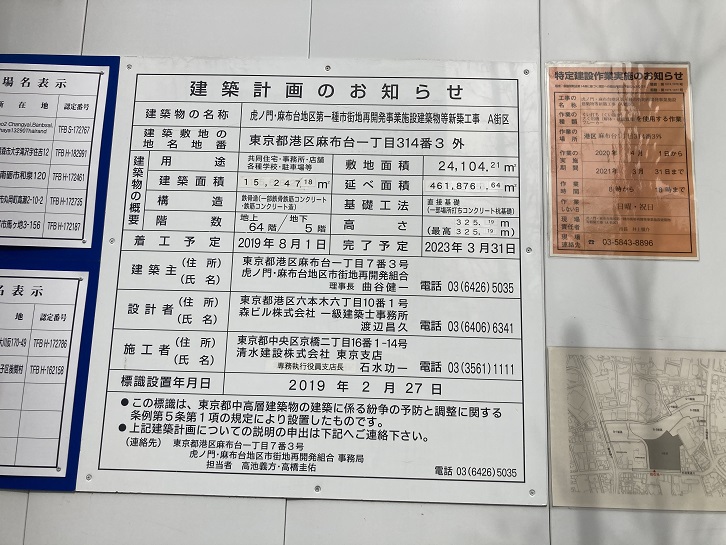 場名表示
所在地 認定番号
TFB S-172767
TFB H-182991
TFB H-172461
TFB H-172735
TFB H-172187
名表示
地 認定番号
TFB H-172786
TFB H-162158
建築計画のお知らせ
建築物の名称 虎ノ門・麻布台地区第一種市街地再開発事業施設建築物等新築工事 A街区
建築敷地の地名地番 東京都港区麻布台一丁目314番3 外
建築物の概要
用途 共同住宅・事務所・店舗 各種学校・駐車場等 敷地面積 24,104.21㎡
建築面積 15,247.18㎡ 延べ面積 461,876.64㎡
構造 鉄骨造(一部鉄骨鉄筋コンクリート・鉄筋コンクリート造) 基礎工法 直接基礎 (一部場所打ちコンクリート杭基礎)
階数 地上64階/地下5階 高さ 325.19m (最高325.19m)
着工予定 2019年8月1日 完了予定 2023年3月31日
建築主 (住所) (氏名) 東京都港区麻布台一丁目7番3号
虎ノ門・麻布台地区市街地再開発組合
理事長 曲谷健一 電話 03(6426)5035
設計者 (住所) (氏名) 東京都港区六本木六丁目10番1号
森ビル株式会社 一級建築士事務所
渡辺昌久 電話 03(6406)6341
施工者 (住所) (氏名) 東京都中央区京橋二丁目16番1-14号
清水建設株式会社 東京支店
専務執行役員支店長 石水功一 電話 03(3561)1111
標識設置年月日 2019年2月27日
●この標識は、東京都中高層建築物の建築に係る紛争の予防と調整に関する
条例第5条第1項の規定により設置したものです。
●上記建築計画についての説明の申出は下記へご連絡下さい。
(連絡先) 東京都港区麻布台一丁目7番3号
虎ノ門・麻布台地区市街地再開発組合 事務局
担当者 高池義方・高橋圭佑 電話 03(6426)5035
特定建設作業実施のお知らせ
工事の名称
作業の種類 を使用する作業
作業の場所
実施期間 2020年4月1日から
2021年3月31日まで
作業時間
日曜・祝日
現場責任者
現場連絡先 ☎ 03-5843-8896